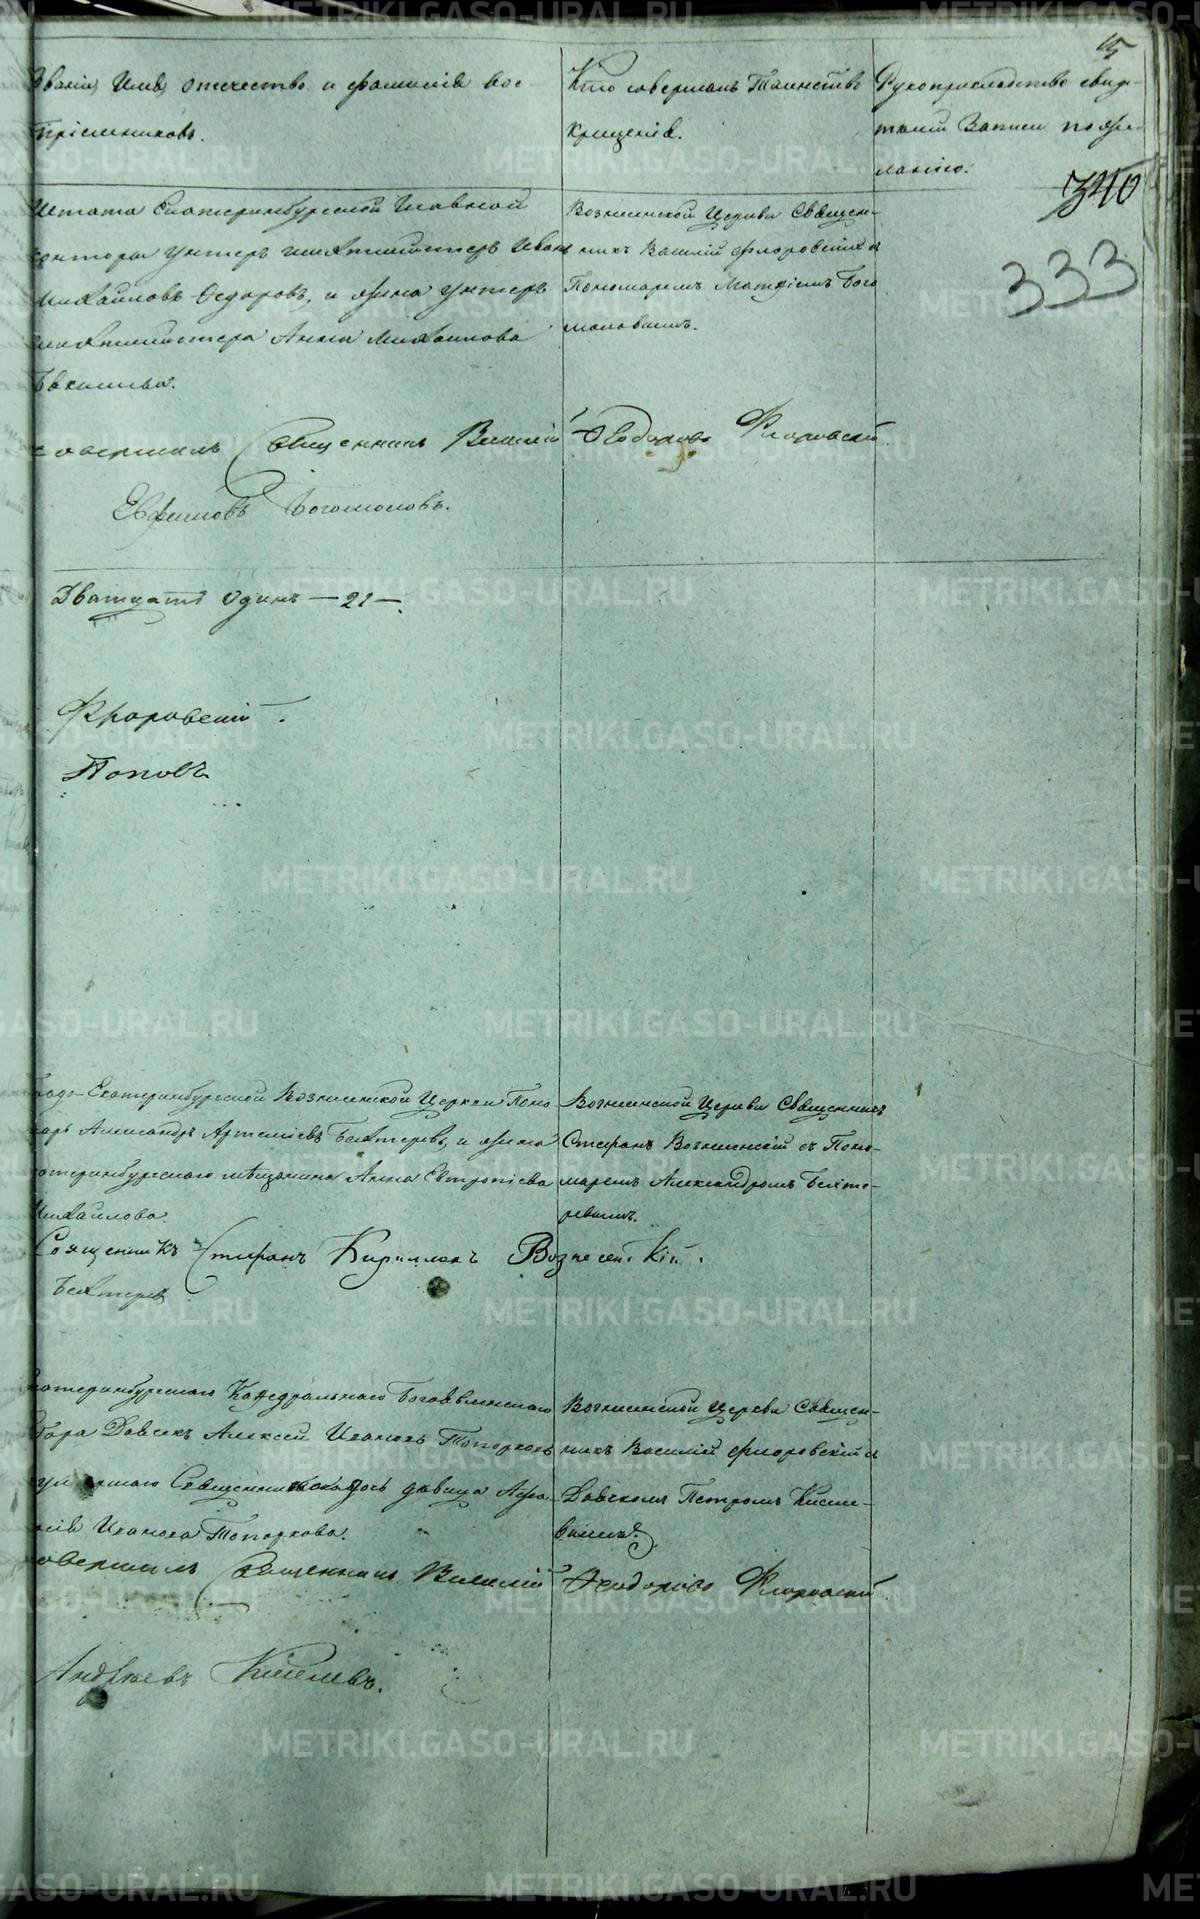 15
Званіе, Имя, отечество и фамилія вос-
пріемниковъ.
Кто совершалъ Таинство
крещенія.
Рукоприкладство свидѣ-
телей Записи по же-
ланію.
340
333
Штата Екатеринбургской Главной
конторы Унтеръ шихтмейстеръ Иванъ
Михайловъ Федоровъ, и жена унтеръ
шихтмейстера Анна Михайлова
Вознесенской Церкви Священ-
никъ Василій Флоровскій съ
Пономаремъ Матѳіемъ Бого
моловымъ.
совершилъ Священникъ Василій Ѳеодоровъ Флоровскій.
Евфимовъ Богомоловъ.
Дватцать одинъ — 21 —.
Флоровскій.
Поповъ
Градо-Екатеринбургской Вознесенской Церкви Поно
марь Александръ Артеміевъ Бехтеревъ, и жена
Екатеринбургскаго мѣщанина Анна Евтропіева
Михайлова.
Вознесенской Церкви Священникъ
Стефанъ Вознесенскій съ Поно-
маремъ Александромъ Бехте-
ревымъ.
Священникъ Стефанъ Кирилловъ Вознесенскій.
Бехтерев
Екатеринбургскаго Кафедральнаго Богоявленскаго
Собора Дьячекъ Алексей Ивановъ Топорковъ
умершаго Священника дочь девица
Иванова Топоркова.
Вознесенской Церкви Священ-
никъ Василій Флоровскій съ
Дьячкомъ Петромъ Кисле-
вымъ.
совершилъ Священникъ Василій Ѳеодоровъ Флоровскій.
Андреевъ Киселевъ.
METRIKI.GASO-URAL.RU